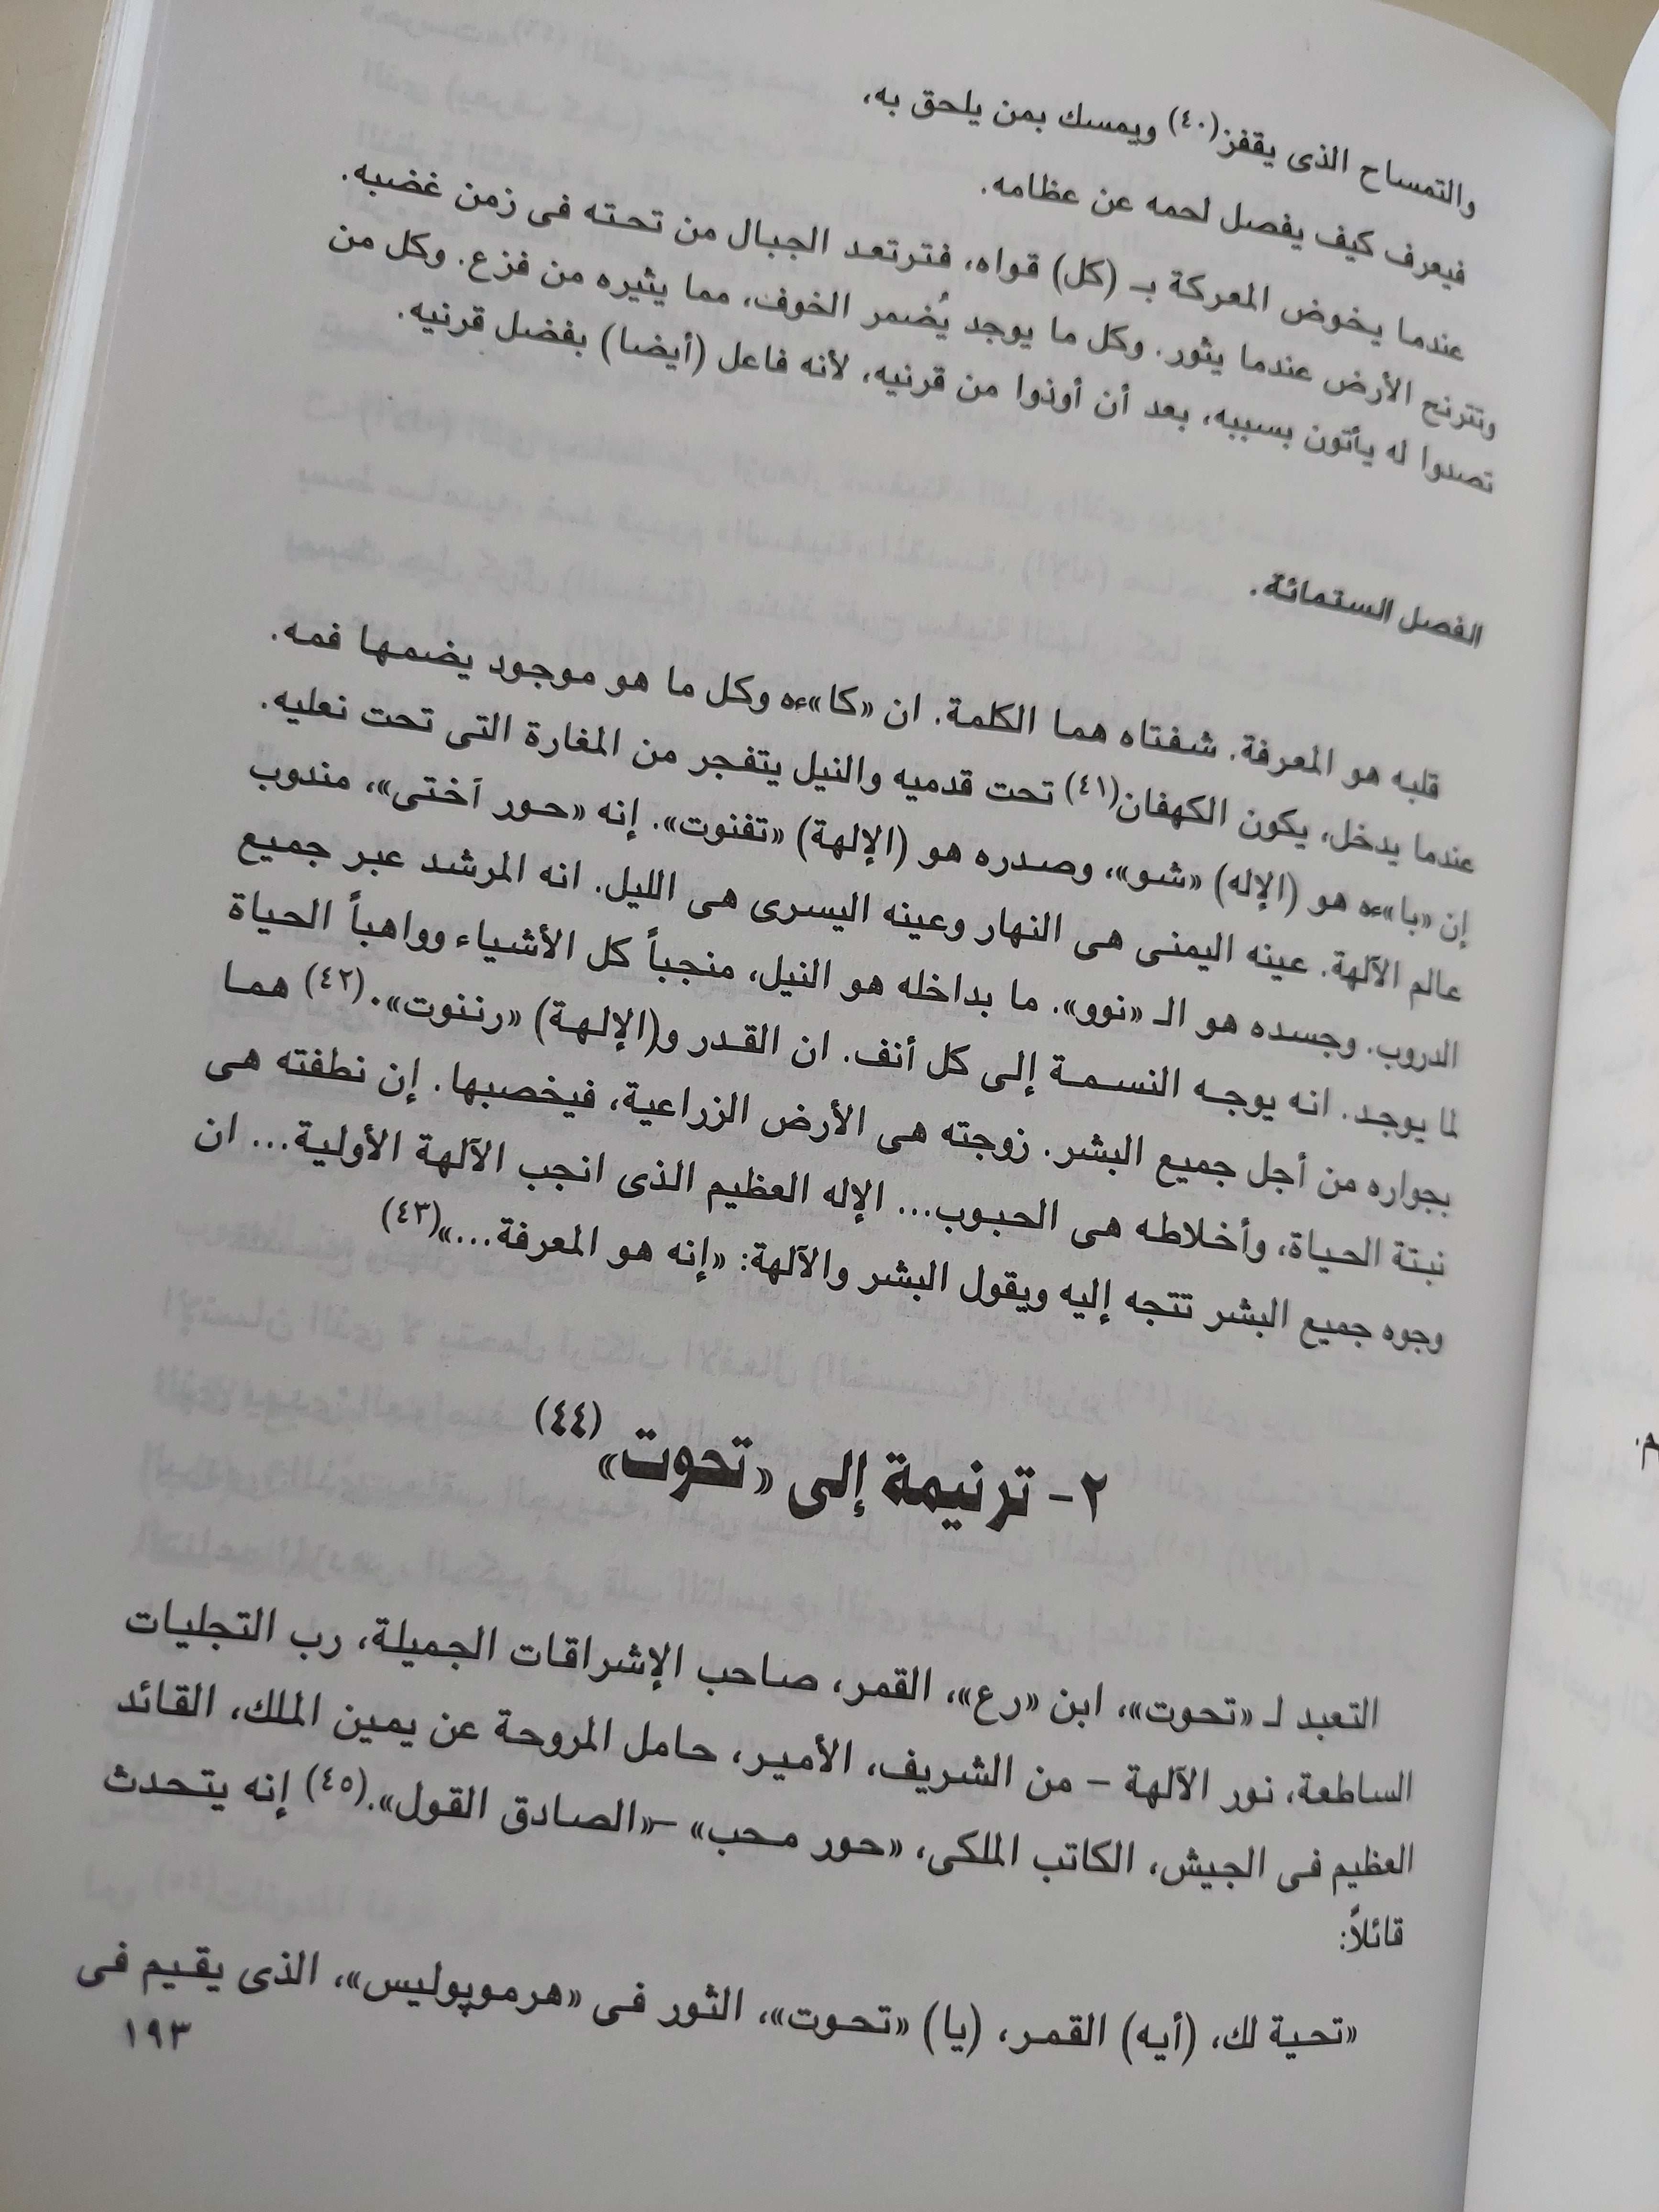 والتمساح الذى يقفز(٤٠) ويمسك بمن يلحق به،
فيعرف كيف يفصل لحمه عن عظامه.
عندما يخوض المعركة بـ (كل) قواه، فترتعد الجبال من تحته فى زمن غضبه.
وتترنح الأرض عندما يثور. وكل ما يوجد يُضمر الخوف، مما يثيره من فزع. وكل من
تصدوا له يأتون بسببه، بعد أن أوذوا من قرنيه، لأنه فاعل (أيضا) بفضل قرنيه.
الفصل الستمائة.
قلبه هو المعرفة. شفتاه هما الكلمة. ان «كا»ءه وكل ما هو موجود يضمها فمه.
عندما يدخل، يكون الكهفان(٤١) تحت قدميه والنيل يتفجر من المغارة التى تحت نعليه.
إن «با»ءه هو (الإله) «شو»، وصدره هو (الإلهة) «تفنوت». إنه «حور آختى»، مندوب
عالم الآلهة. عينه اليمنى هى النهار وعينه اليسرى هى الليل. انه المرشد عبر جميع
الدروب. وجسده هو الـ «نوو». ما بداخله هو النيل، منجباً كل الأشياء وواهباً الحياة
لما يوجد. انه يوجه النسمة إلى كل أنف. ان القدر و(الإلهة) «رننوت».(٤٢) هما
بجواره من أجل جميع البشر. زوجته هى الأرض الزراعية، فيخصبها. إن نطفته هى
نبتة الحياة، وأخلاطه هى الحبوب... الإله العظيم الذى انجب الآلهة الأولية... ان
وجوه جميع البشر تتجه إليه ويقول البشر والآلهة: «إنه هو المعرفة...»(٤٣)
٢- ترنيمة إلى «تحوت»(٤٤)
التعبد لـ «تحوت»، ابن «رع»، القمر، صاحب الإشراقات الجميلة، رب التجليات
الساطعة، نور الآلهة – من الشريف، الأمير، حامل المروحة عن يمين الملك، القائد
العظيم فى الجيش، الكاتب الملكى، «حور محب» –«الصادق القول».(٤٥) إنه يتحدث
قائلاً:
«تحية لك، (أيه) القمر، (يا) «تحوت»، الثور فى «هرموپوليس»، الذى يقيم فى
١٩٣